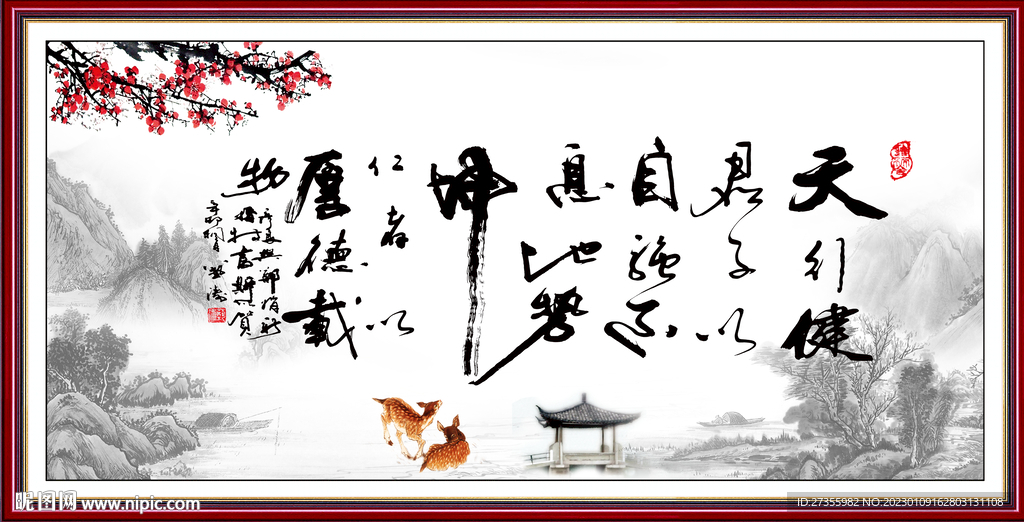 天行健
君子以
自強不
息地勢
坤
仁者以
厚德載
物
昵图网 www.nipic.com
ID:27355982 NO.20230109162803131108